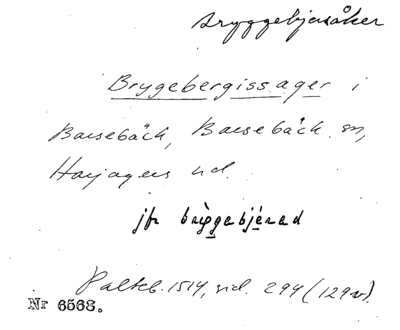 Bryggebjersåker
Brygebergissager i
Barsebäck, Barsebäck sn,
Harjagers hd.
jfr bryggebjersed
Palteb. 1514, sid. 294 (129v).
Nr 6563.